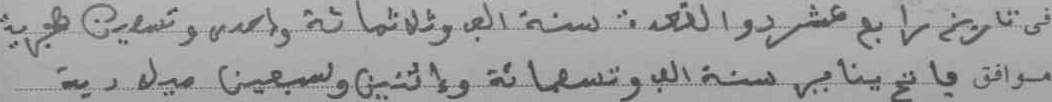 فى تاريخ رابع عشر ذو القعدة سنة الف وثلاثمائة واحدى وتسعين هجرية
موافق فاتح يناير سنة الف وتسعمائة وإثنين وسبعين ميلادية